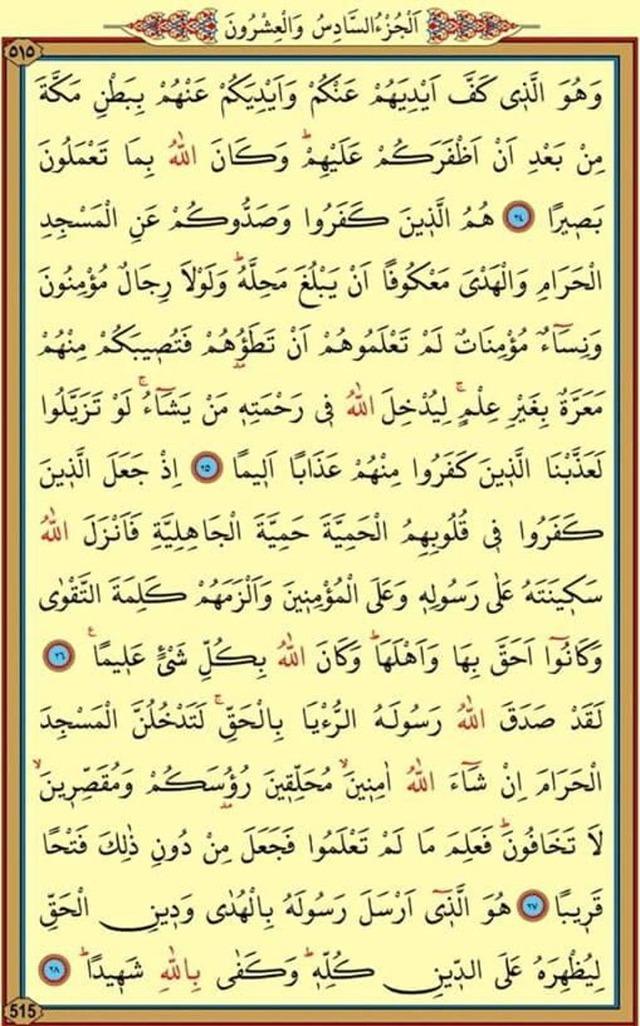 اَلْجُزْءُالسَّادِسُ وَالْعِشْرُونَ
٥١٥
وَهُوَ الَّذ۪ى كَفَّ اَيْدِيَهُمْ عَنْكُمْ وَاَيْدِيَكُمْ عَنْهُمْ بِبَطْنِ مَكَّةَ
مِنْ بَعْدِ اَنْ اَظْفَرَكُمْ عَلَيْهِمْۜ وَكَانَ اللّٰهُ بِمَا تَعْمَلُونَ
بَص۪يرًا ٢٤ هُمُ الَّذ۪ينَ كَفَرُوا وَصَدُّوكُمْ عَنِ الْمَسْجِدِ
الْحَرَامِ وَالْهَدْىَ مَعْكُوفًا اَنْ يَبْلُغَ مَحِلَّهُۜ وَلَوْلَا رِجَالٌ مُؤْمِنُونَ
وَنِسَٓاءٌ مُؤْمِنَاتٌ لَمْ تَعْلَمُوهُمْ اَنْ تَطَؤُ۫هُمْ فَتُص۪يبَكُمْ مِنْهُمْ
مَعَرَّةٌ بِغَيْرِ عِلْمٍۚ لِيُدْخِلَ اللّٰهُ ف۪ى رَحْمَتِه۪ مَنْ يَشَٓاءُۚ لَوْ تَزَيَّلُوا
لَعَذَّبْنَا الَّذ۪ينَ كَفَرُوا مِنْهُمْ عَذَابًا اَل۪يمًا ٢٥ اِذْ جَعَلَ الَّذ۪ينَ
كَفَرُوا ف۪ى قُلُوبِهِمُ الْحَمِيَّةَ حَمِيَّةَ الْجَاهِلِيَّةِ فَاَنْزَلَ اللّٰهُ
سَك۪ينَتَهُ عَلٰى رَسُولِه۪ وَعَلَى الْمُؤْمِن۪ينَ وَاَلْزَمَهُمْ كَلِمَةَ التَّقْوٰى
وَكَانُٓوا اَحَقَّ بِهَا وَاَهْلَهَاۜ وَكَانَ اللّٰهُ بِكُلِّ شَىْءٍ عَل۪يمًا۟ ٢٦
لَقَدْ صَدَقَ اللّٰهُ رَسُولَهُ الرُّءْيَا بِالْحَقِّۚ لَتَدْخُلُنَّ الْمَسْجِدَ
الْحَرَامَ اِنْ شَٓاءَ اللّٰهُ اٰمِن۪ينَۙ مُحَلِّق۪ينَ رُؤُ۫سَكُمْ وَمُقَصِّر۪ينَۙ
لَا تَخَافُونَۜ فَعَلِمَ مَا لَمْ تَعْلَمُوا فَجَعَلَ مِنْ دُونِ ذٰلِكَ فَتْحًا
قَر۪يبًا ٢٧ هُوَ الَّذ۪ٓى اَرْسَلَ رَسُولَهُ بِالْهُدٰى وَد۪ينِ الْحَقِّ
لِيُظْهِرَهُ عَلَى الدّ۪ينِ كُلِّه۪ۜ وَكَفٰى بِاللّٰهِ شَه۪يدًاۜ ٢٨
515